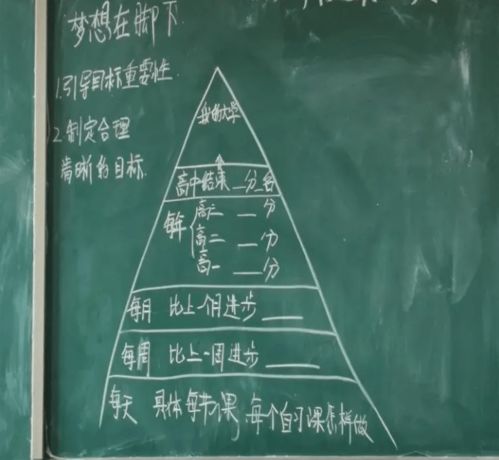 梦想在脚下
1.引导目标重要性.
2.制定合理
清晰的目标.
我的大学
高中结束__分_名
每年
高三 __分
高二 __分
高一 __分
每月 比上一个月进步____
每周 比上一周进步____
每天 具体每节课,每个自习课怎样做